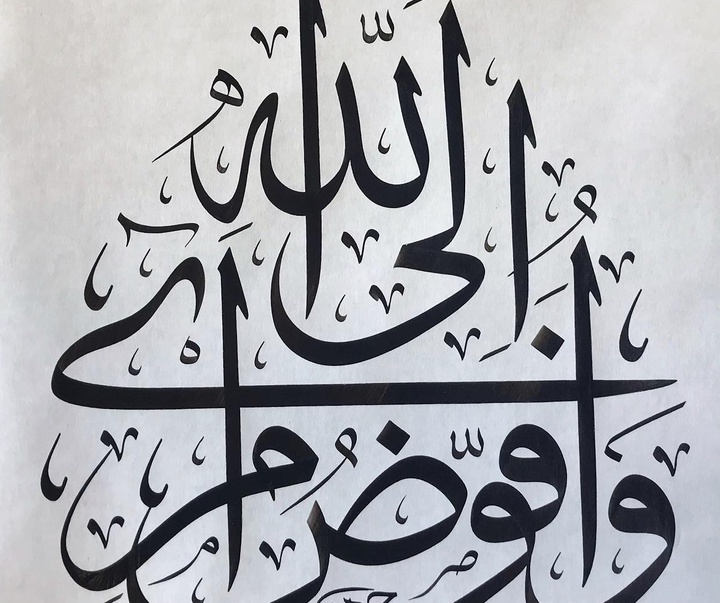 وَأُفَوِّضُ أَمْرِي
إِلَى اللَّهِ